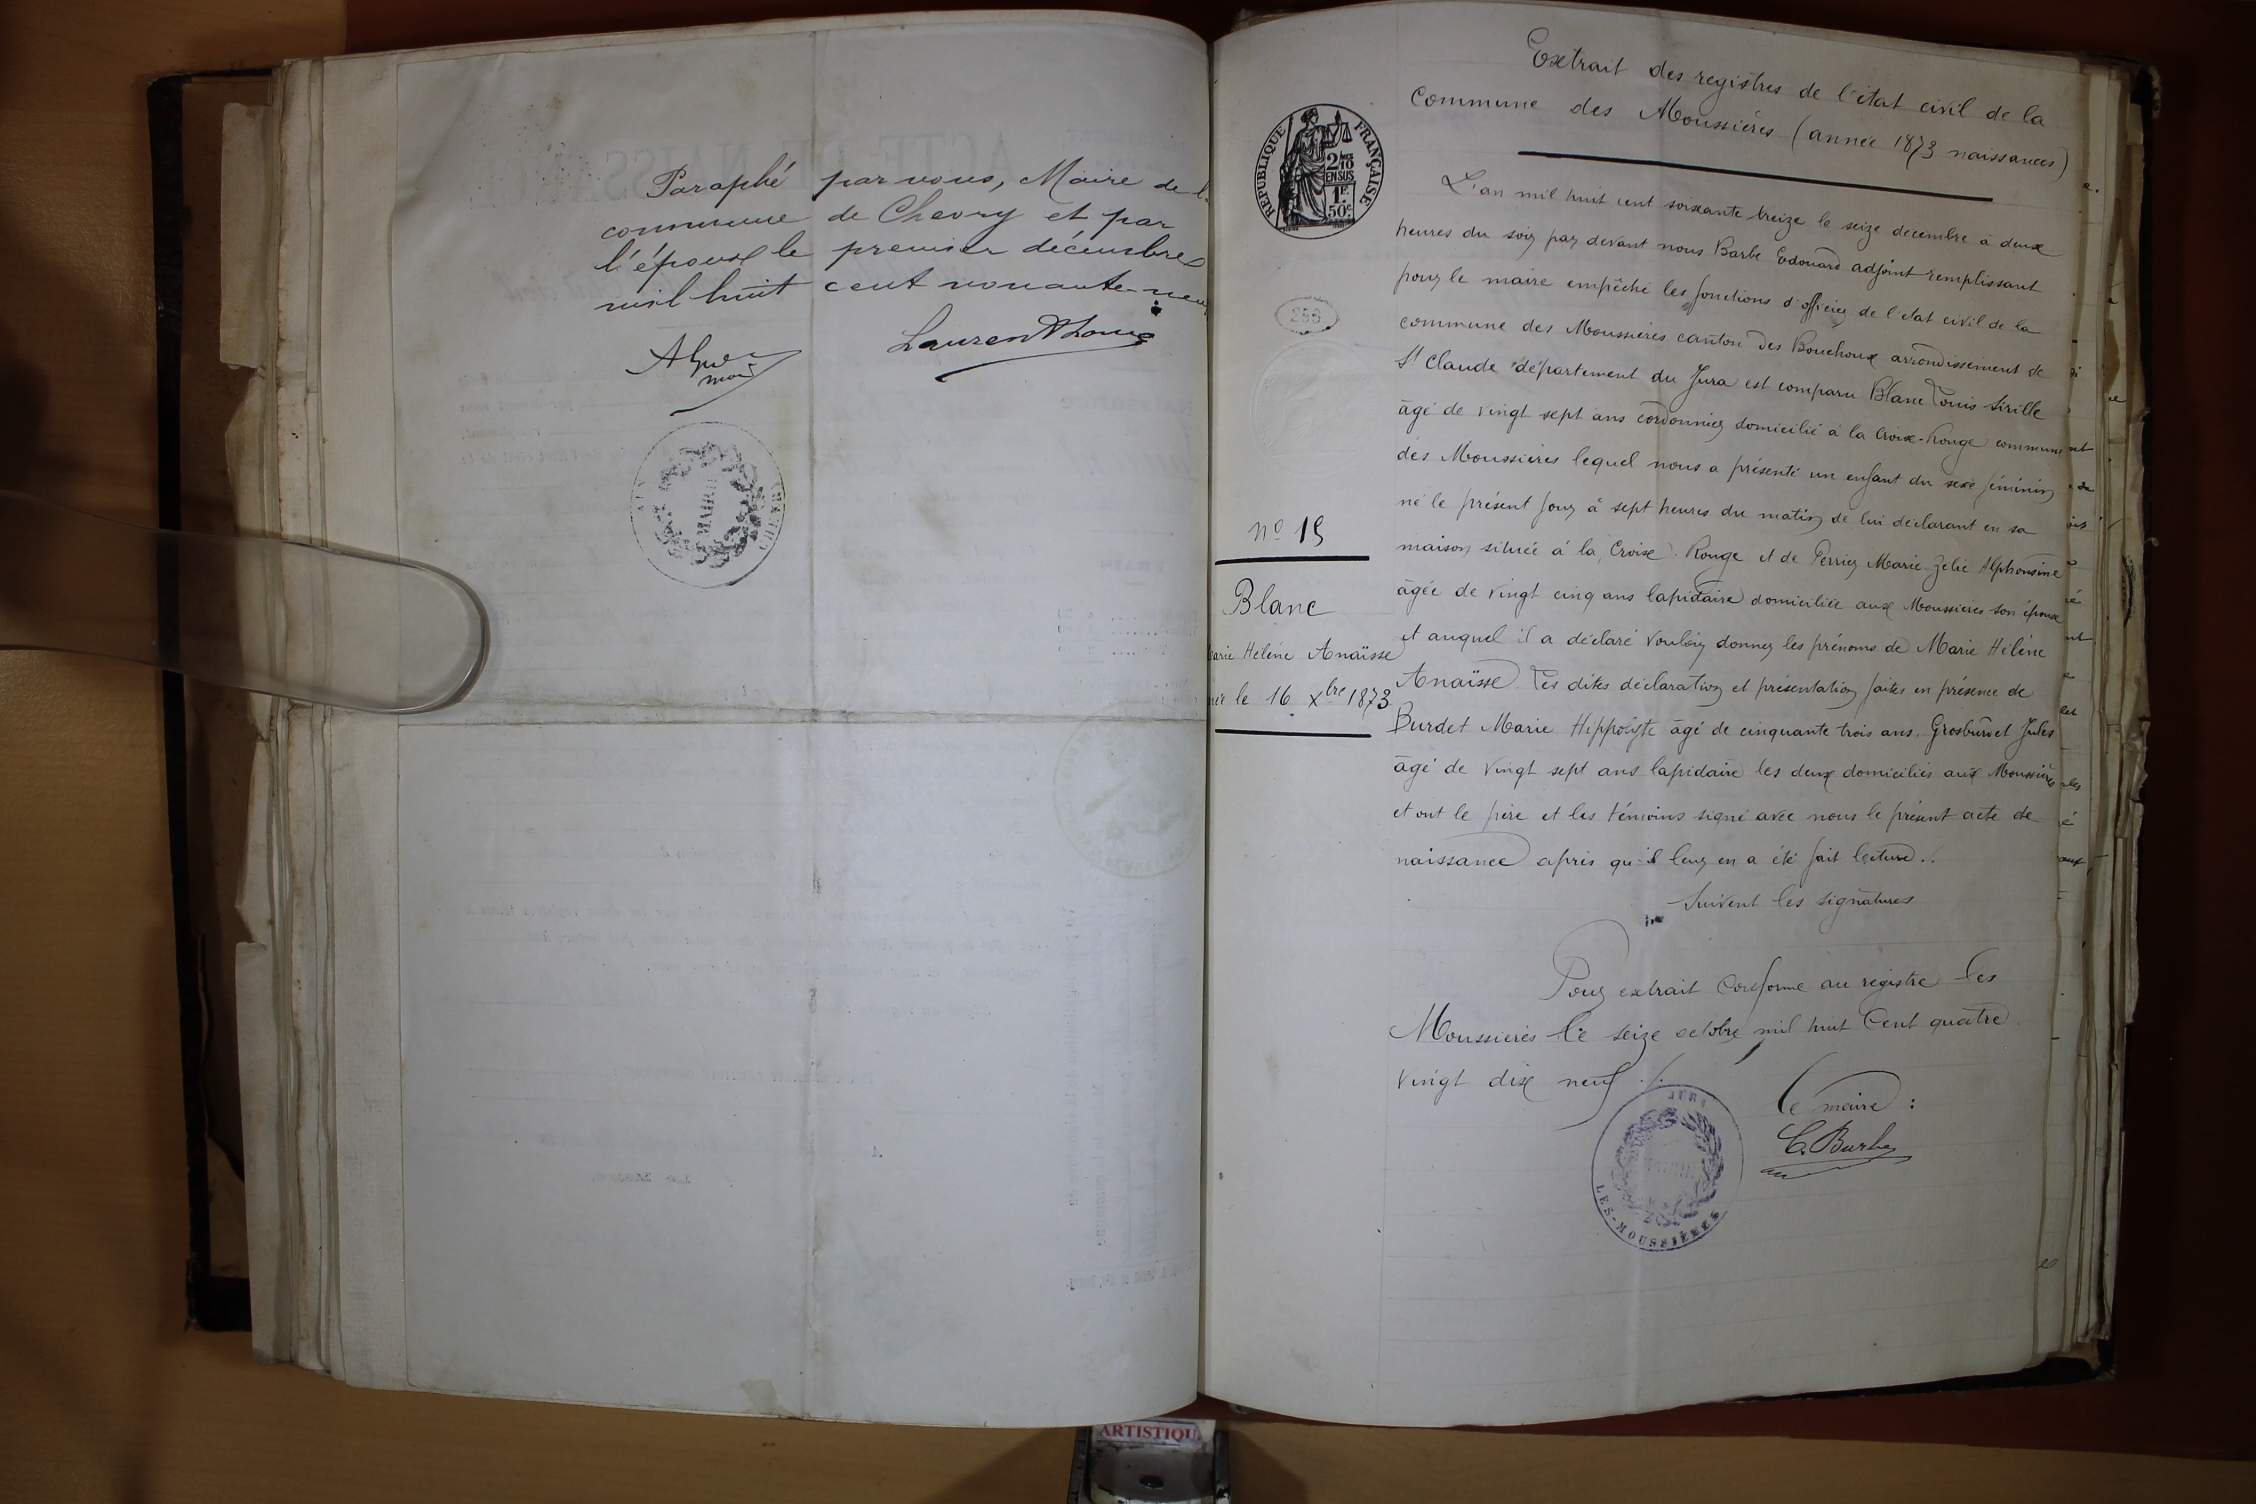 Paraphé par nous, Maire de l
commune de Chevry et par
l'époux le premier décembre
mil huit cent nonante-neu
maire
AIN
MAIRIE
CHEVRY
Extrait des registres de l'état civil de la
Commune des Moussières (année 1873 naissances)
RÉPUBLIQUE FRANÇAISE
2/10
EN SUS
1F.
50c.
L'an mil huit cent soixante treize le seize decembre à deux
heures du soir par devant nous Barbe Edouard adjoint remplissant
pour le maire empêché les fonctions d'officier de l'etat civil de la
commune des Moussières canton des Bouchoux arrondissement de
St Claude département du Jura est comparu Blanc Louis Sirille
âgé de vingt sept ans cordonnier domicilié à la Croix-Rouge commune
des Moussières lequel nous a présenté un enfant du sexe féminin
né le présent jour à sept heures du matin de lui déclarant en sa
maison située à la Croix-Rouge et de Perrier Marie Zelie Alphonsine
âgée de vingt cinq ans lapidaire domiciliée aux Moussières son épouse
et auquel il a déclaré vouloir donner les prénoms de Marie Hélène
Anaïsse Les dites déclaration et présentation faites en présence de
Burdet Marie Hippolyte âgé de cinquante trois ans, Grosburdet Jules
âgé de vingt sept ans lapidaire les deux domiciliés aux Moussières
et ont le père et les témoins signé avec nous le présent acte de
naissance après qu'il leur en a été fait lecture ./.
Suivent les signatures
Pour extrait conforme au registre Les
Moussières le seize octobre mil huit cent quatre
vingt dix neuf ./.
Le maire :
C. Barbe
JURA
MAIRIE
LES-MOUSSIÈRES
No 15
Blanc
arie Hélène Anaïsse
née le 16 Xbre 1873
ARTISTIQU